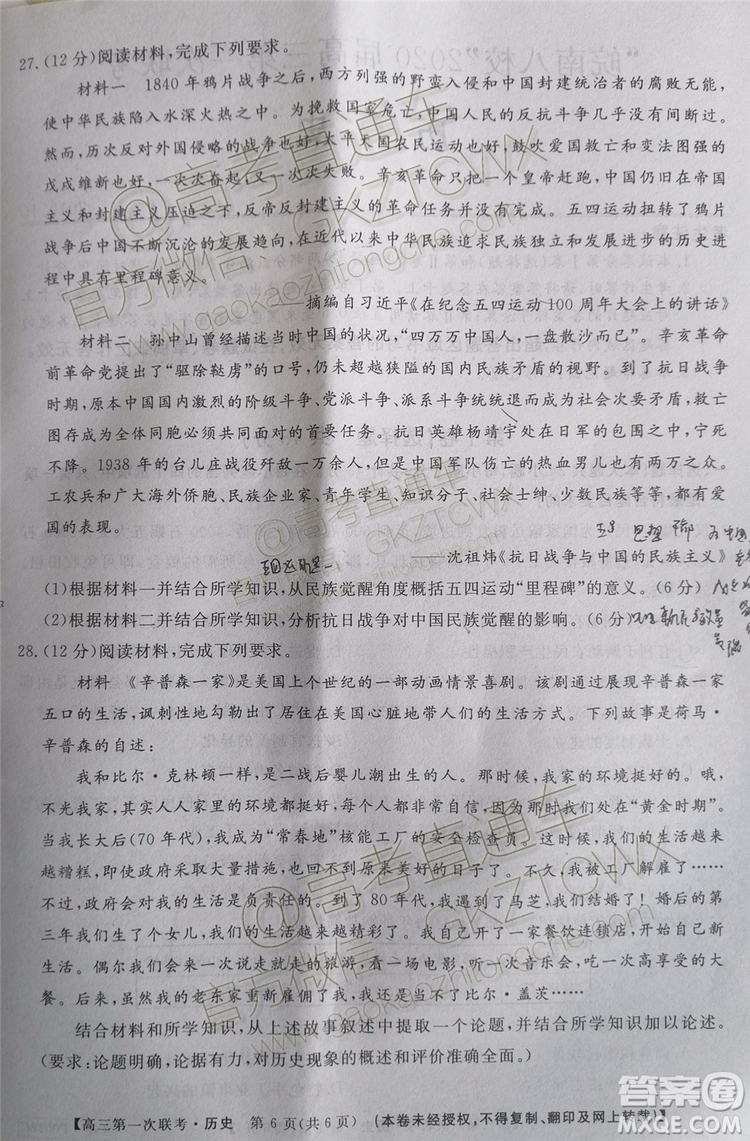 27.(12 分)阅读材料,完成下列要求。
材料一 1840 年鸦片战争之后,西方列强的野蛮入侵和中国封建统治者的腐败无能,
使中华民族陷入水深火热之中。为挽救国家危亡,中国人民的反抗斗争几乎没有间断过。
然而,历次反对外国侵略的战争、太平天国农民运动,鼓吹爱国救亡和变法图强的
戊戌维新运动,一次次奋起,又一次次失败。辛亥革命只是把一个皇帝赶跑,中国仍旧在帝国
主义和封建主义压迫之下,反帝反封建主义的革命任务并没有完成。五四运动扭转了鸦片
战争后中国不断沉沦的发展趋向,在近代以来中华民族追求民族独立和发展进步的历史进
程中具有里程碑意义。
——摘编自习近平《在纪念五四运动 100 周年大会上的讲话》
材料二 孙中山曾经描述当时中国的状况,“四万万中国人,一盘散沙而已”。辛亥革命
前革命党高呼了“驱除鞑虏”的口号,仍未超越狭隘的国内民族矛盾的视野。到了抗日战争
时期,原本中国国内激烈的阶级斗争、党派斗争、派系斗争统统退居到了次要地位,救亡图存
成为全体同胞必须共同面对的首要任务。抗日英雄杨靖宇在日军的包围之中,宁死
不降。1938 年的台儿庄战役歼敌一万余人,但中国军队伤亡的热血男儿也有两万之众。
工农兵和广大海外侨胞、民族企业家、青年学生、知识分子、社会士绅、少数民族等等,都有爱
国的表现。
——沈祖炜《抗日战争与中国的民族主义》
(1)根据材料一并结合所学知识,从民族觉醒角度概括五四运动“里程碑”的意义。(6 分)
(2)根据材料二并结合所学知识,分析抗日战争对中国民族觉醒的影响。(6 分)
28.(12 分)阅读材料,完成下列要求。
材料 《辛普森一家》是美国上个世纪的一部动画情景喜剧。该剧通过展现辛普森一家
五口的生活,讽刺性地勾勒出了居住在美国心脏地带人们的生活方式。下列故事是荷马·
辛普森的自述:
我和比尔·克林顿一样,是二战后婴儿潮出生的人。那时候,我家的环境挺好的。哦,
不光我家,其实人人家里的环境都挺好,学者们说我出生在美国的“黄金时期”。
当我长大后(70 年代),我成为了“常春地”核能工厂的安全检查员。这时候,我们的生活越来
越糟糕,即使政府采取大量措施,也回不到原来美好的日子了。不久,我被工厂解雇了……
政府却对我和家人的生活还是负责任的。到了 80 年代,我遇到了马芝,我们结婚后的第
三年我们生了个女儿,我们的生活也越来越精彩!我们家附近开了一家餐饮连锁店,开始了
新生活。我和马芝会来一次说走就走的旅游,看一场电影,听一次音乐会,享受一次美味大
餐。虽然今天我的老东家重新雇佣了我,但是,我还是想成为下一个比尔·盖茨……
结合材料和所学知识,从上述故事叙述中提取一个论题,并结合所学知识加以论述。
(要求:论题明确,论据有力,对历史现象的概述和评价准确全面。)
【高三第一次联考·历史 第 6 页(共 6 页) (本卷未经授权,不得复制、翻印及网上转载)】
答案圈
MXQE.COM
@高考直通车
官方微信:GKZTCWX
www.gaokaozhitongche.com